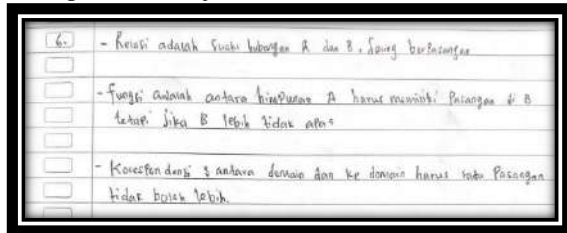 6. - Relasi adalah suatu hubungan A dan B. saling berpasangan
- fungsi adalah antara himpunan A harus memiliki Pasangan di B
tetapi jika B lebih tidak apas
- Korespondensi : antara domain dan ko domain harus satu Pasangan
tidak boleh lebih.